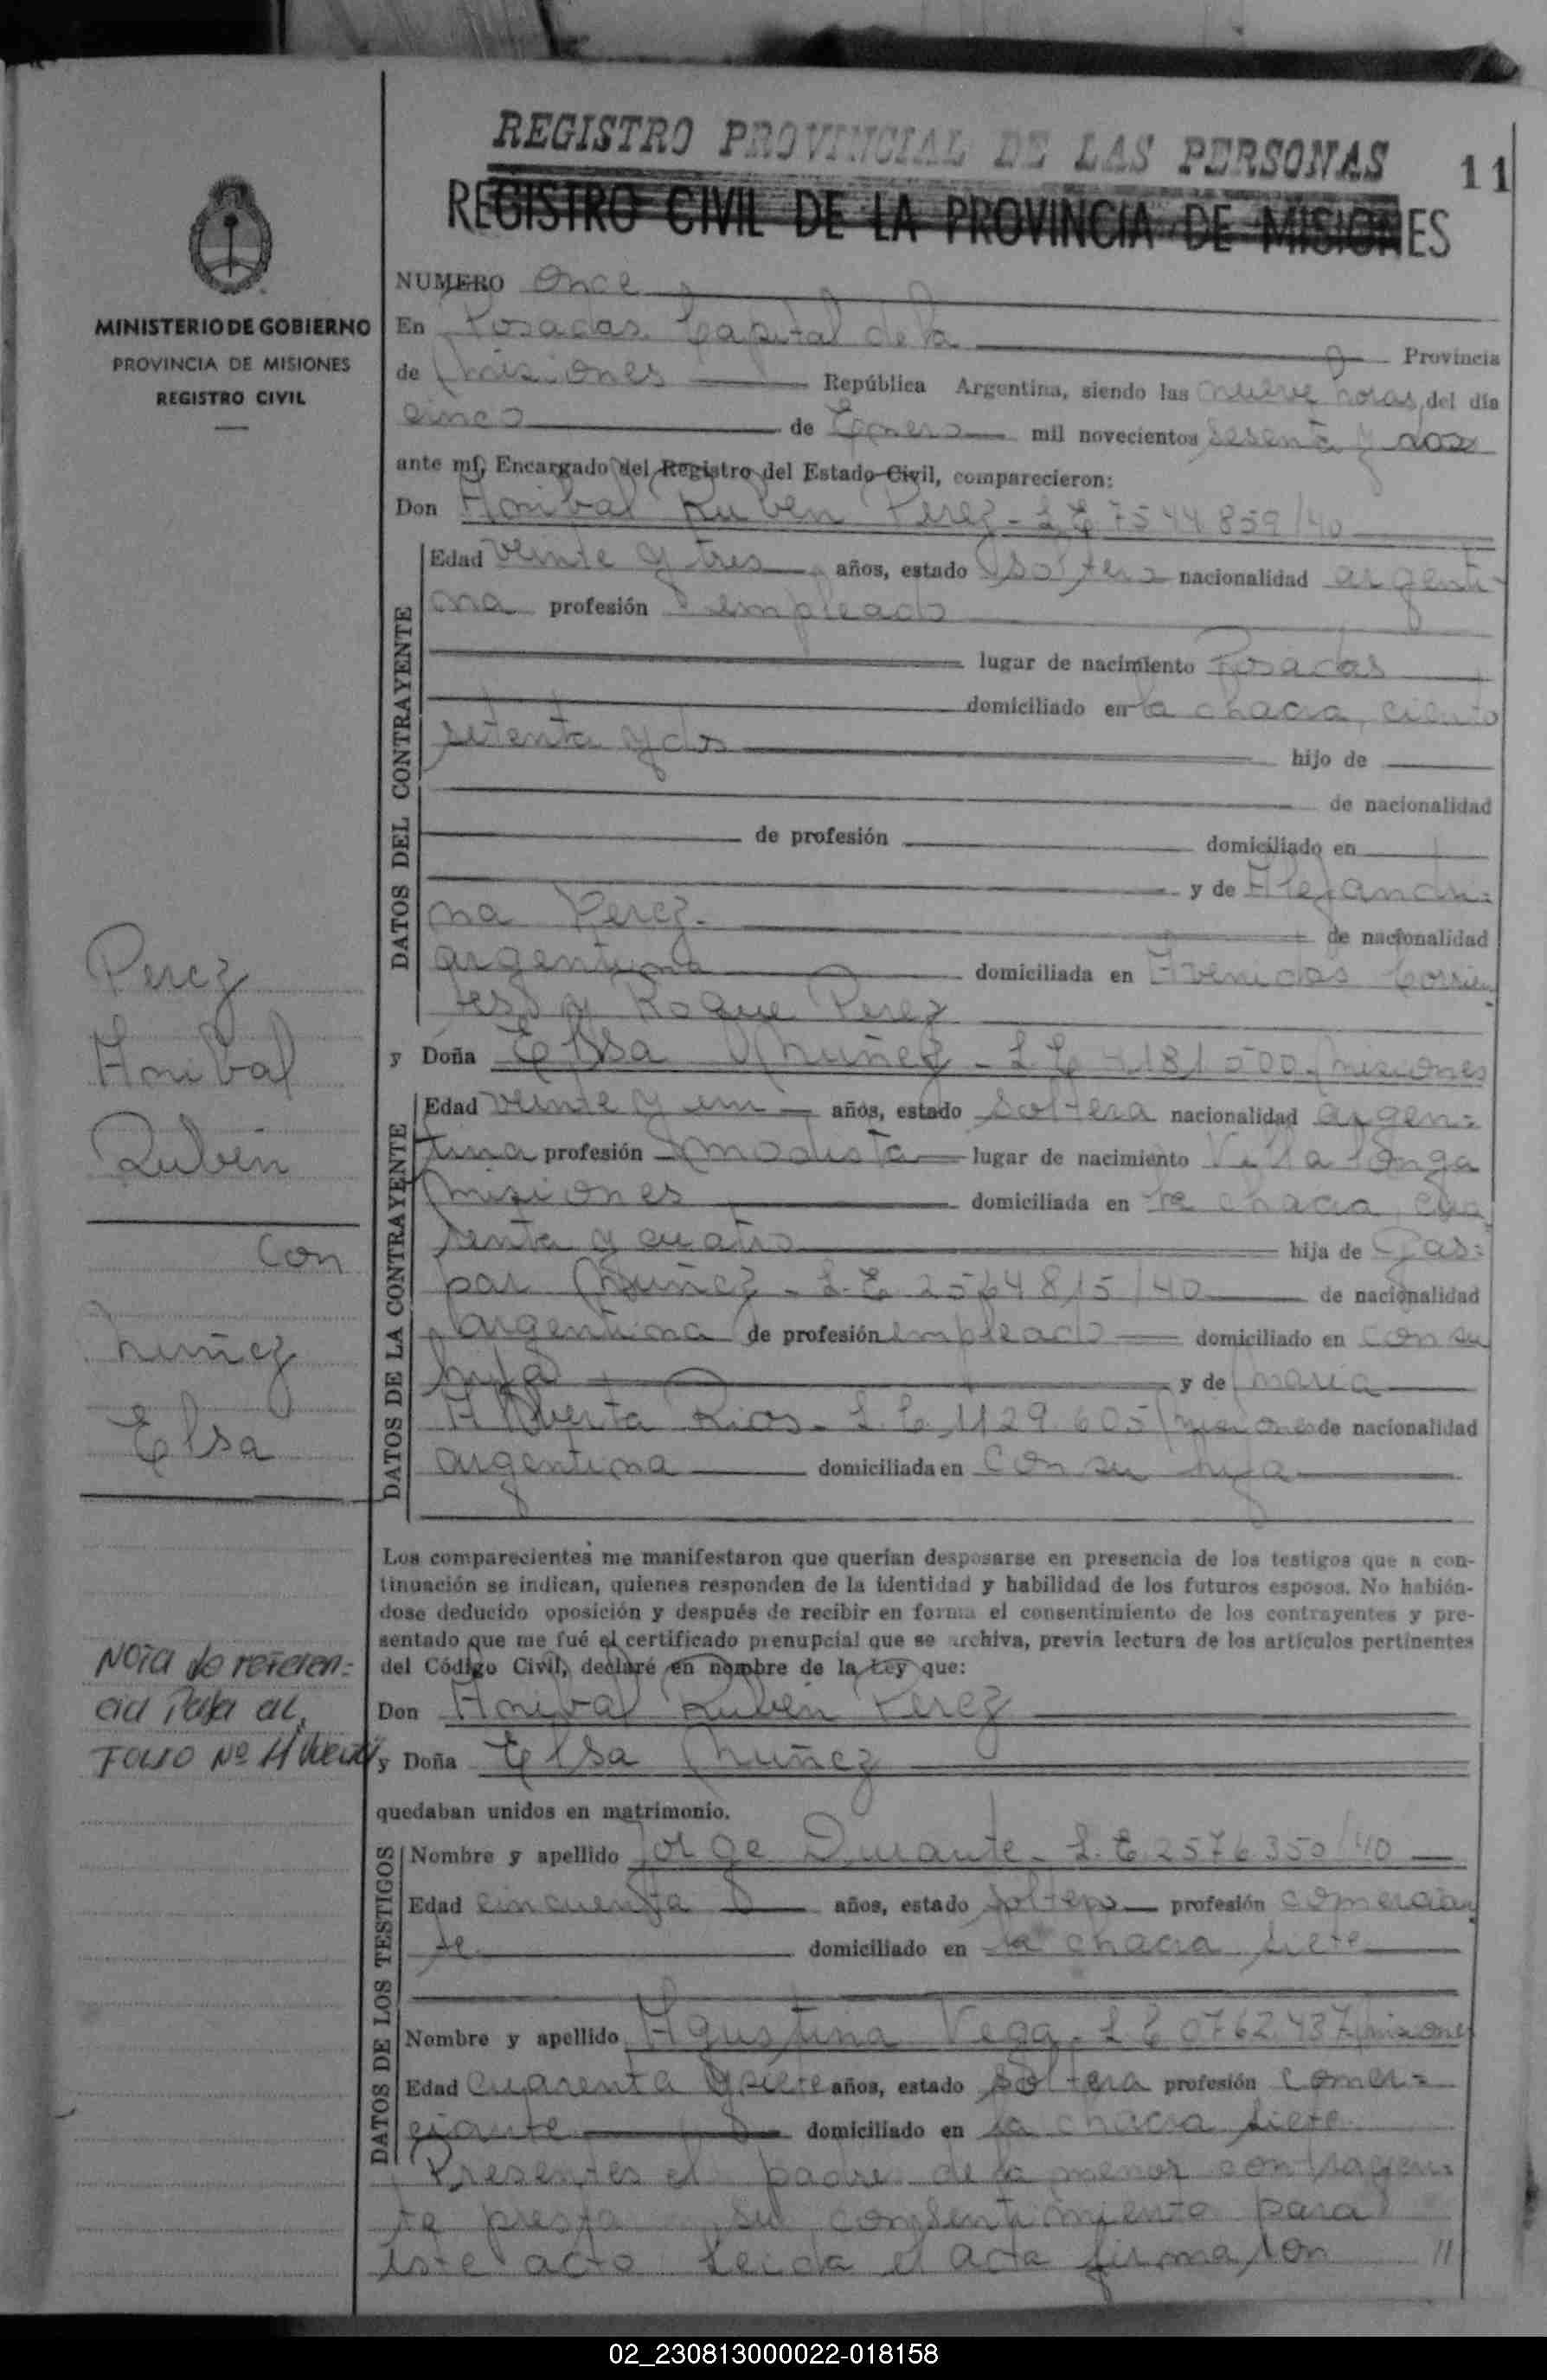 REGISTRO PROVINCIAL DE LAS PERSONAS
11
REGISTRO CIVIL DE LA PROVINCIA DE MISIONES
MINISTERIO DE GOBIERNO
PROVINCIA DE MISIONES
REGISTRO CIVIL
NUMERO Once
En Posadas Capital de la Provincia
de Misiones República Argentina, siendo las nueve horas, del día
cinco de Enero mil novecientos sesenta y dos
ante mí, Encargado del Registro del Estado Civil, comparecieron:
Don Anibal Ruben Perez - L E 7544859/40
DATOS DEL CONTRAYENTE
Edad veinte y tres años, estado soltero nacionalidad argenti-
na profesión empleado
lugar de nacimiento Posadas
domiciliado en la chacra, ciento
setenta y dos hijo de
de nacionalidad
de profesión domiciliado en
y de Alejandri=
na Perez- de nacionalidad
argentina domiciliada en Avenidas Corrien
tes y Roque Perez
Perez
Anibal
Rubén
con
Nuñez
Elsa
y Doña Elsa Nuñez - L C 4181500/misiones
DATOS DE LA CONTRAYENTE
Edad veinte y un años, estado soltera nacionalidad argen=
tina profesión modista lugar de nacimiento Villa longa
misiones domiciliada en la chacra cua
renta y cuatro hija de Gas=
par Nuñez - L. E 2564815/40 de nacionalidad
argentina de profesión empleado domiciliado en con su
hija y de Maria
Alberta Rios - L. C. 1129.605/misiones de nacionalidad
argentina domiciliada en con su hija
Los comparecientes me manifestaron que querían desposarse en presencia de los testigos que a con-
tinuación se indican, quienes responden de la identidad y habilidad de los futuros esposos. No habién-
dose deducido oposición y después de recibir en forma el consentimiento de los contrayentes y pre-
sentado que me fué el certificado prenupcial que se archiva, previa lectura de los artículos pertinentes
del Código Civil, declaré en nombre de la Ley que:
Nota de referen=
cia Pasa al
Folio Nº 11 vuelta
Don Anibal Rubén Perez
y Doña Elsa Nuñez
quedaban unidos en matrimonio.
DATOS DE LOS TESTIGOS
Nombre y apellido Jorge Durante - L. E. 2576350/40
Edad cincuenta años, estado soltero profesión comercian
te domiciliado en la chacra siete
Nombre y apellido Agustina Vega - L C 0762.437/misiones
Edad cuarenta y siete años, estado soltera profesión comer=
ciante domiciliado en la chacra siete
Presentes el padre de la menor contrayen=
te presta su consentimiento para
este acto Leida el acta firmaron //
02_230813000022-018158